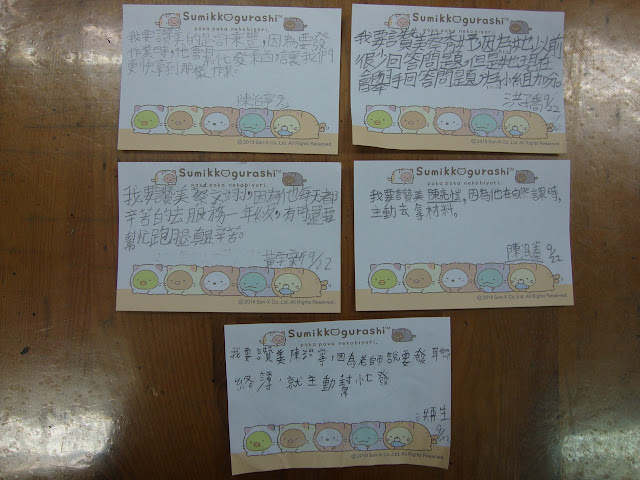 Sumikkogurashi™
paka paka nekobiyori.
我要讚美的是許秉豐,因為要發
作業時,他會幫忙發本函,讓我們
更快拿到那樣作業。
陳治寧 9/22
© 2019 San-X Co., Ltd. All Rights Reserved.
Sumikkogurashi™
paka paka nekobiyori.
因為她以前
很少回答問題,但是她現在
會舉手回答問題,為小組加分
9/22
© 2019 San-X Co., Ltd. All Rights Reserved.
Sumikkogurashi™
paka paka nekobiyori.
我要讚美蔡 因為他每天都
辛苦的去服務一年級,有時還要
幫忙跑腿,真是辛苦。
9/22
© 2019 San-X Co., Ltd. All Rights Reserved.
Sumikkogurashi™
paka paka nekobiyori.
我要讚美陳 因為他在自然課時,
主動去拿材料。
陳 9/22
© 2019 San-X Co., Ltd. All Rights Reserved.
Sumikkogurashi™
paka paka nekobiyori.
我要讚美陳治寧,因為老師說要發聯
絡簿,就主動幫忙發
9/22
© 2019 San-X Co., Ltd. All Rights Reserved.